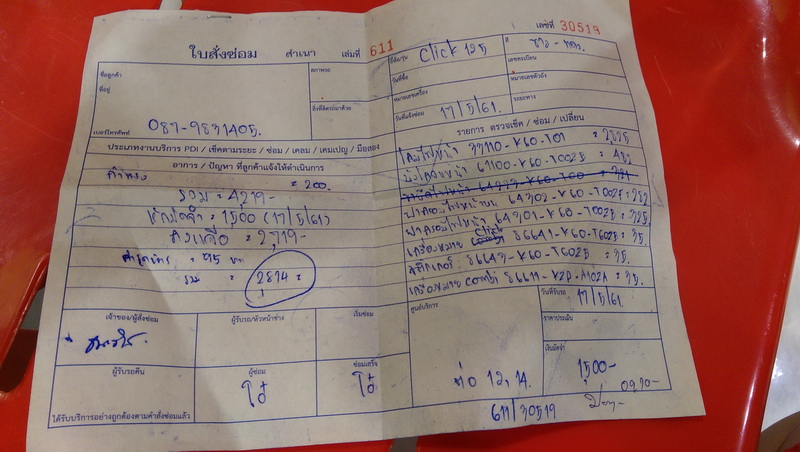 ใบสั่งซ่อม สำเนา เล่มที่ 611
เลขที่ 30519
ชื่อลูกค้า
ที่อยู่
เบอร์โทรศัพท์ 087-9831405.
สภาพรถ
สิ่งที่ติดรถมาด้วย
ยี่ห้อ/รุ่น Click 125
สี ขาว - แดง
วันที่ซื้อ
เลขทะเบียน
หมายเลขเครื่อง
หมายเลขตัวถัง
วันที่แจ้งซ่อม 17/5/61.
ระยะทาง
ประเภทงานบริการ PDI / เช็คตามระยะ / ซ่อม / เคลม / เคมเปญ / มือสอง
อาการ / ปัญหา ที่ลูกค้าแจ้งให้ดำเนินการ
ค่าแรง = 200.
รวม = 4219-
หักมัดจำ = 1500 (17/5/61)
คงเหลือ = 2,719-
= 95
รวม = 2814 =
รายการ ตรวจเช็ค / ซ่อม / เปลี่ยน
โคมไฟหน้า 33110-K60-T01 = 2825
บังโคลนหน้า 61100-K60-T002S = 482
ฝาครอบไฟหน้าบน 64302-K60-T002S = 282
ฝาครอบไฟหน้า 64301-K60-T002S = 325.
เครื่องหมาย Click 86641-K60-T602S = 35.
สติ๊กเกอร์ 86643-K60-T602S = 35.
เครื่องหมาย combi 86611-KZP-A102A = 35.
เจ้าของ/ผู้สั่งซ่อม
ผู้รับรถ/หัวหน้าช่าง
เริ่มซ่อม
ศูนย์บริการ
วันที่รับรถ 17/5/61.
ราคาประเมิน
เงินมัดจำ 1,500-
ผู้รับรถคืน
ผู้ซ่อม โอ๋
ซ่อมเสร็จ โอ๋
ต่อ 12, 14.
ได้รับบริการอย่างถูกต้องตามคำสั่งซ่อมแล้ว
611/30519